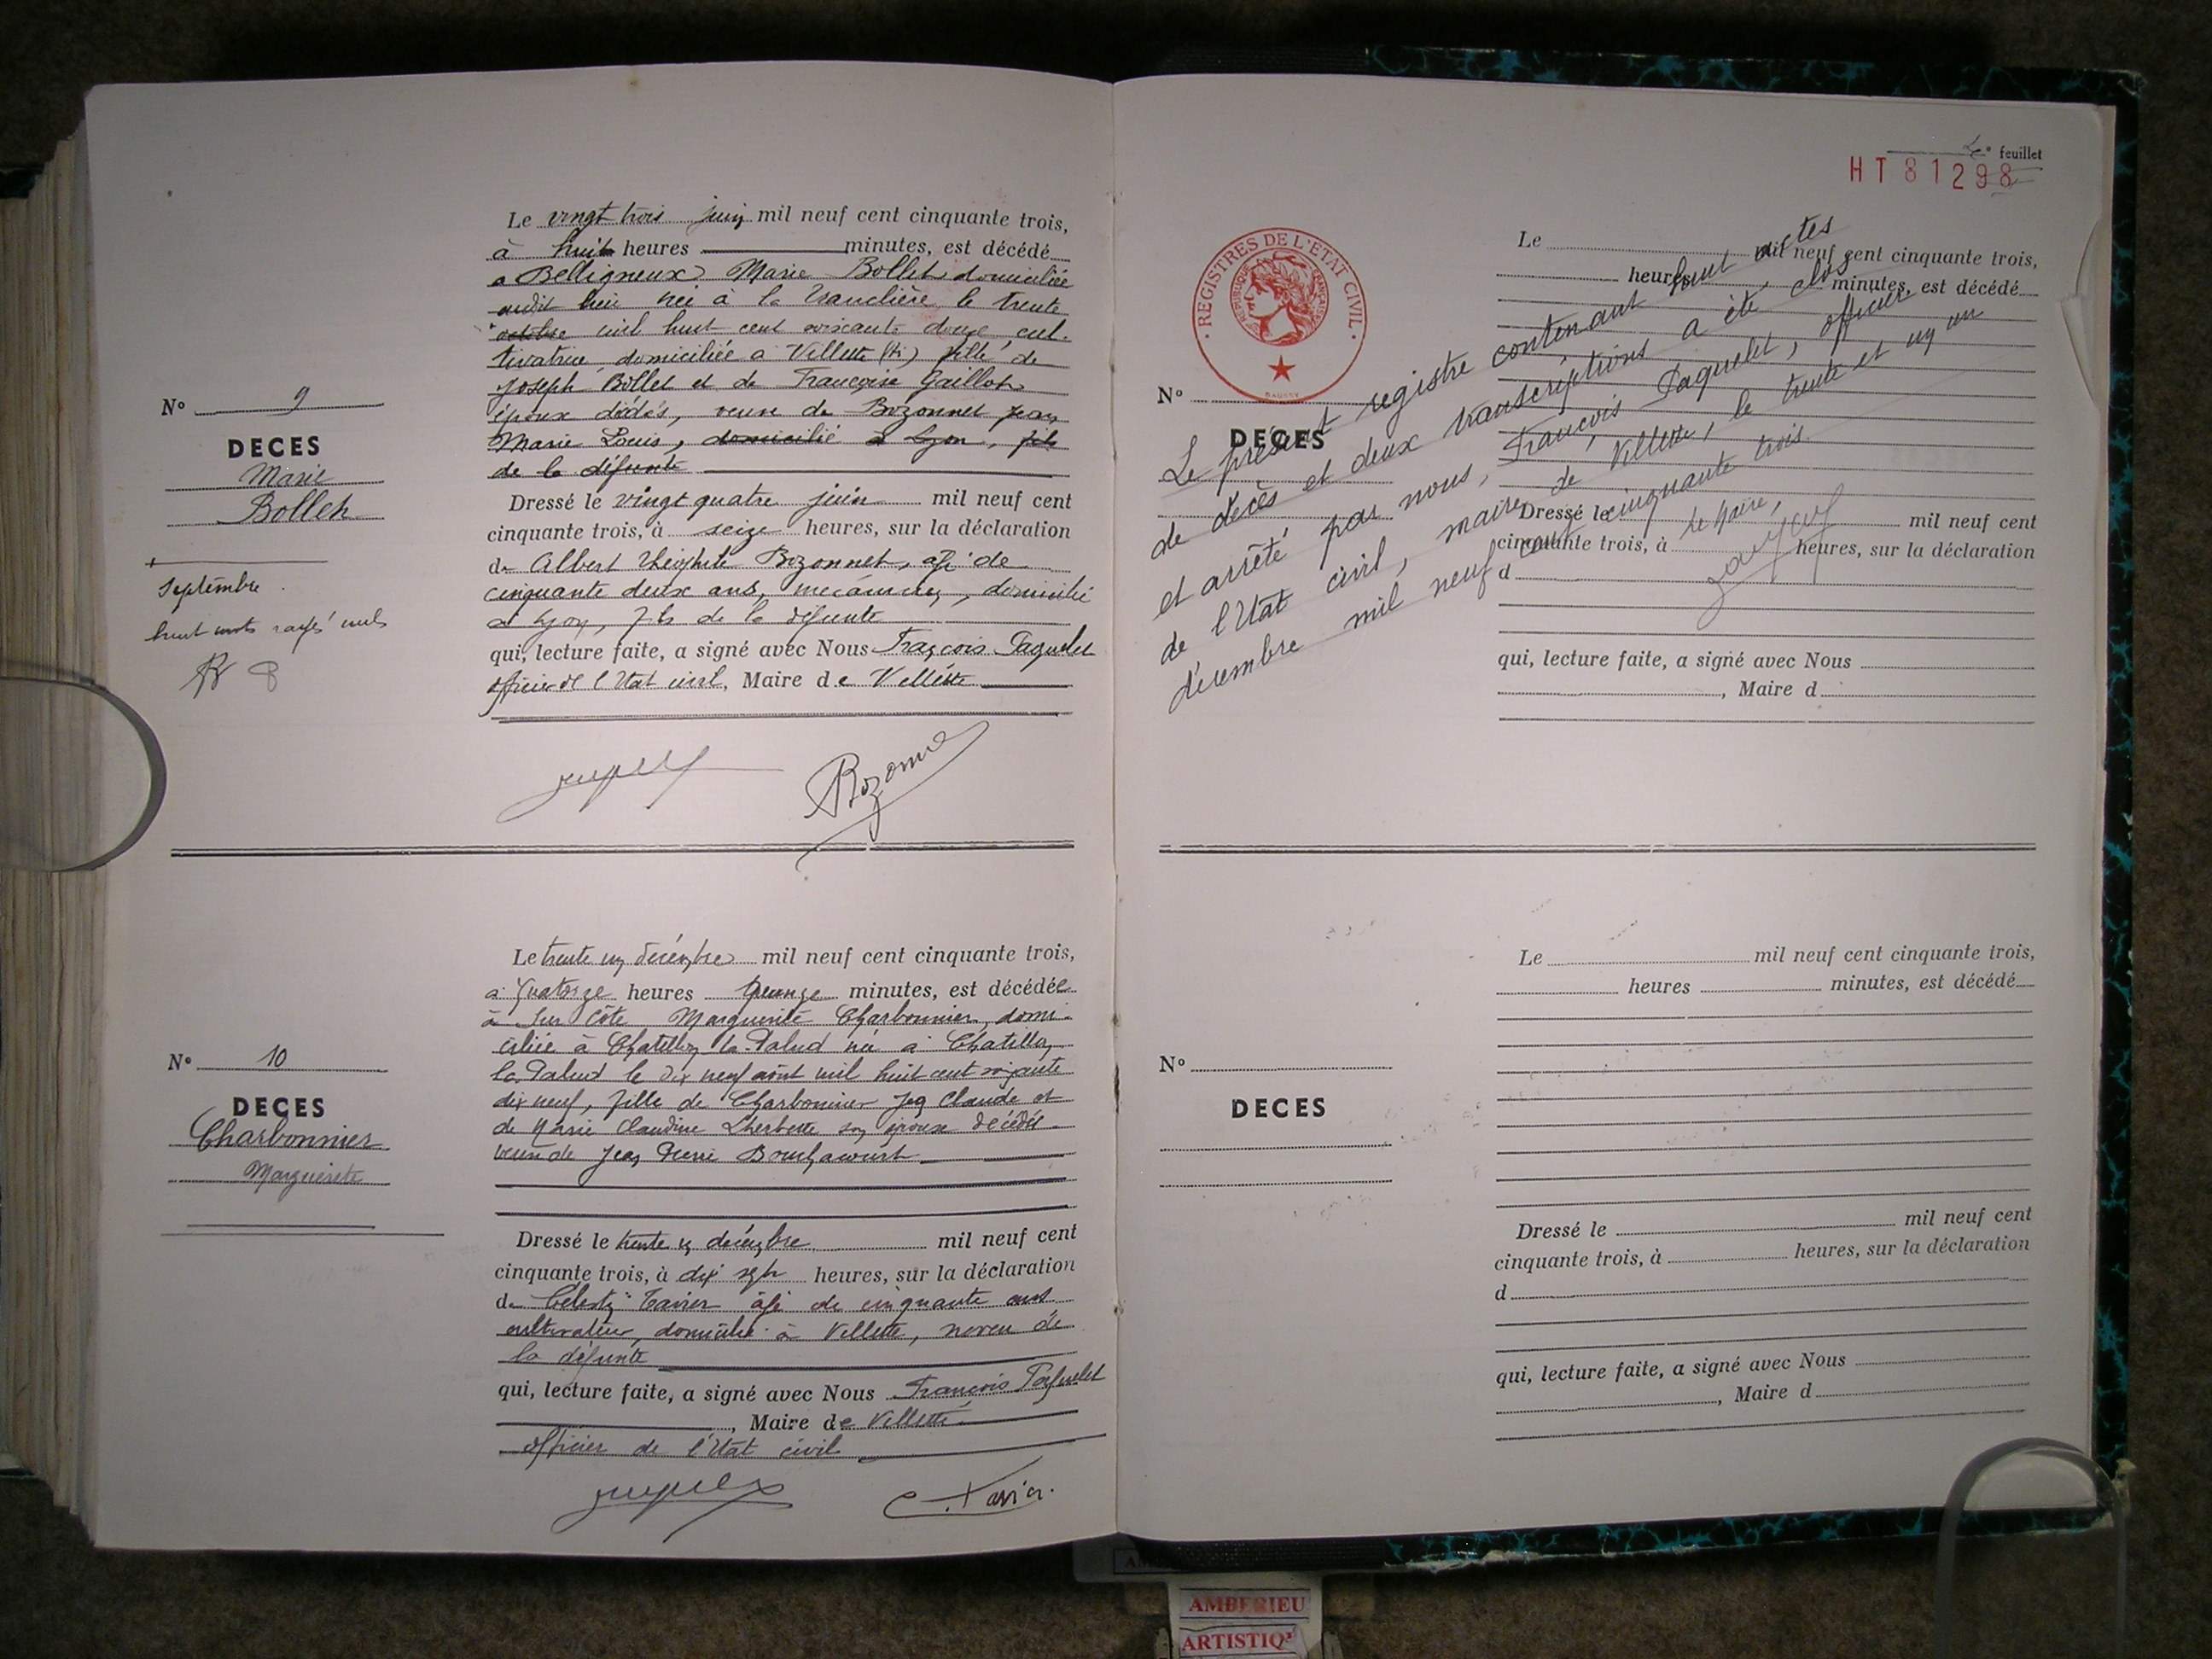 Le vingt trois juin mil neuf cent cinquante trois,
à huit heures minutes, est décédé
a Belligneux Marie Bollet domiciliée
audit lieu née à la Tranclière le trente
octobre mil huit cent soixante douze cul-
tivatrice domiciliée a Villette fille de
Joseph Bollet et de Françoise Gaillot
époux , veuve de Bozonnet Jean
Marie Louis, domicilié à Lyon, fils
de la défunte
Nº 9
DECES
Marie
Bollet
Septembre
huit mots rayés nuls
Dressé le vingt quatre juin mil neuf cent
cinquante trois, à seize heures, sur la déclaration
de Albert Théophile Bozonnet, agé de
cinquante deux ans, mécanicien, domicilié
a Lyon, fils de la défunte
qui, lecture faite, a signé avec Nous François Paquelet
officier de l'Etat civil, Maire de Villette
Bozonne
Le trente un décembre mil neuf cent cinquante trois,
à Quatorze heures quinze minutes, est décédée
à Sur Côte Marguerite Charbonnier, domi-
ciliée à Chatillon la Palud née à Chatillon
la Palud le dix neuf août mil huit cent soixante
dix neuf, fille de Charbonnier Jean Claude et
de Marie Claudine Lherbette son épouse décédés
veuve de Jean Bouchacourt
Nº 10
DECES
Charbonnier
Marguerite
Dressé le trente un décembre mil neuf cent
cinquante trois, à dix sept heures, sur la déclaration
de Célestin Tavier âgé de cinquante ans
cultivateur, domicilié à Villette, neveu de
la défunte
qui, lecture faite, a signé avec Nous François Paquelet
, Maire de Villette
officier de l'Etat civil
C. Tavier
feuillet
HT 81298
REGISTRES DE L'ETAT CIVIL
Le mil neuf cent cinquante trois,
heures minutes, est décédé
Nº
DECES
Le présent registre contenant huit actes
de décès et deux transcriptions a été, clos
et arrêté par nous, François Paquelet, officier
de l'Etat civil, maire de Villette, le trente et un
décembre mil neuf cent cinquante trois.
Le Maire,
Dressé le mil neuf cent
cinquante trois, à heures, sur la déclaration
d
qui, lecture faite, a signé avec Nous
, Maire d
Le mil neuf cent cinquante trois,
heures minutes, est décédé
Nº
DECES
Dressé le mil neuf cent
cinquante trois, à heures, sur la déclaration
d
qui, lecture faite, a signé avec Nous
, Maire d
AMBERIEU
ARTISTIQ